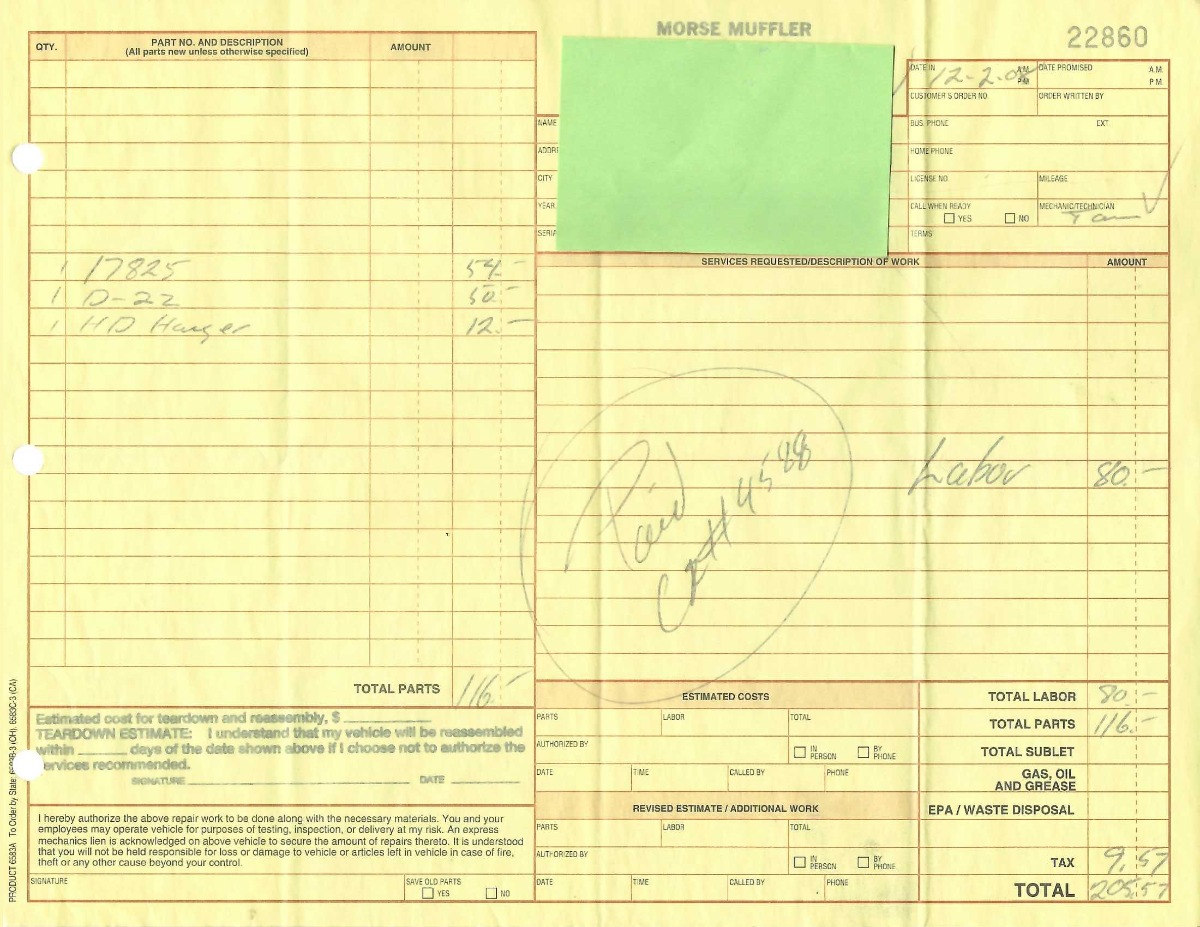 MORSE MUFFLER
22860
QTY. PART NO. AND DESCRIPTION AMOUNT
(All parts new unless otherwise specified)
DATE IN 12-2-08 A.M. P.M. DATE PROMISED A.M. P.M.
CUSTOMER'S ORDER NO. ORDER WRITTEN BY
NAME BUS. PHONE EXT.
ADDRE HOME PHONE
CITY LICENSE NO. MILEAGE
YEAR, CALL WHEN READY YES NO MECHANIC/TECHNICIAN
SERIA TERMS
SERVICES REQUESTED/DESCRIPTION OF WORK AMOUNT
1 17825 54.-
1 D-22 50.-
1 HD Hanger 12.-
Labor 80.-
Paid
TOTAL PARTS 116.-
Estimated cost for teardown and reassembly, $
TEARDOWN ESTIMATE: I understand that my vehicle will be reassembled
within days of the date shown above if I choose not to authorize the
ervices recommended.
SIGNATURE DATE
I hereby authorize the above repair work to be done along with the necessary materials. You and your
employees may operate vehicle for purposes of testing, inspection, or delivery at my risk. An express
mechanics lien is acknowledged on above vehicle to secure the amount of repairs thereto. It is understood
that you will not be held responsible for loss or damage to vehicle or articles left in vehicle in case of fire,
theft or any other cause beyond your control.
SIGNATURE SAVE OLD PARTS YES NO
ESTIMATED COSTS
PARTS LABOR TOTAL
AUTHORIZED BY IN PERSON BY PHONE
DATE TIME CALLED BY PHONE
REVISED ESTIMATE / ADDITIONAL WORK
PARTS LABOR TOTAL
AUTHORIZED BY IN PERSON BY PHONE
DATE TIME CALLED BY PHONE
TOTAL LABOR 80.-
TOTAL PARTS 116.-
TOTAL SUBLET
GAS, OIL
AND GREASE
EPA / WASTE DISPOSAL
TAX 9.57
TOTAL 205.57
PRODUCT 6583A To Order by State: (OH), 6583C-3 (CA)